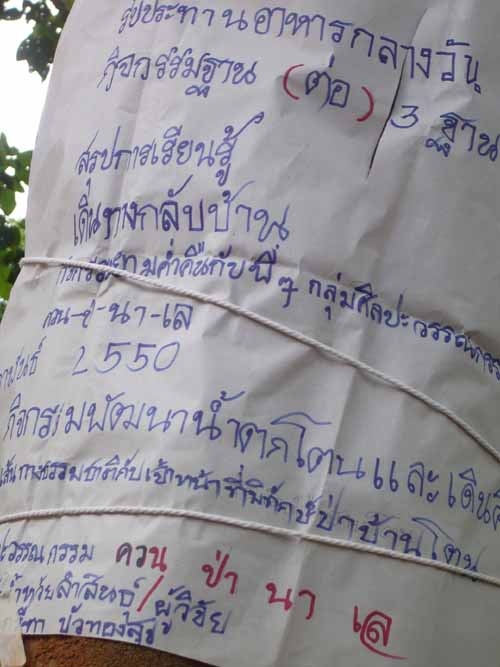 รับประทานอาหารกลางวัน
กิจกรรมฐาน (ต่อ) 3 ฐาน
สรุปการเรียนรู้
เดินทางกลับบ้าน
ค่ำคืนกับพี่ๆ กลุ่มศิลปะวรรณกรรม
ควน-ป่า-นา-เล
2550
กิจกรรมพัฒนาน้ำตกโตนและเดิน
เส้นทางธรรมชาติกับเจ้าหน้าที่พิทักษ์ป่าบ้านโตน
วรรณกรรม ควน ป่า นา เล
/ผู้วิจัย
บัวทองสุข